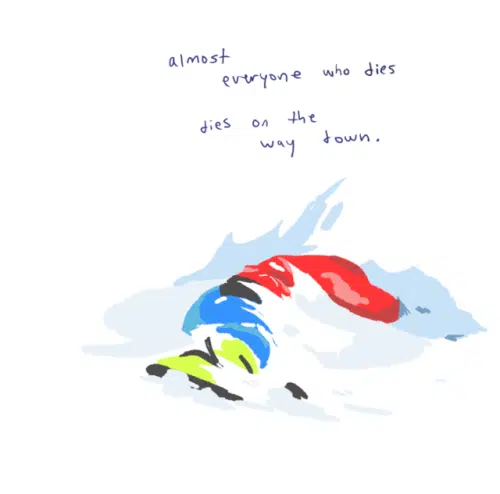 almost
everyone who dies
dies on the
way down.